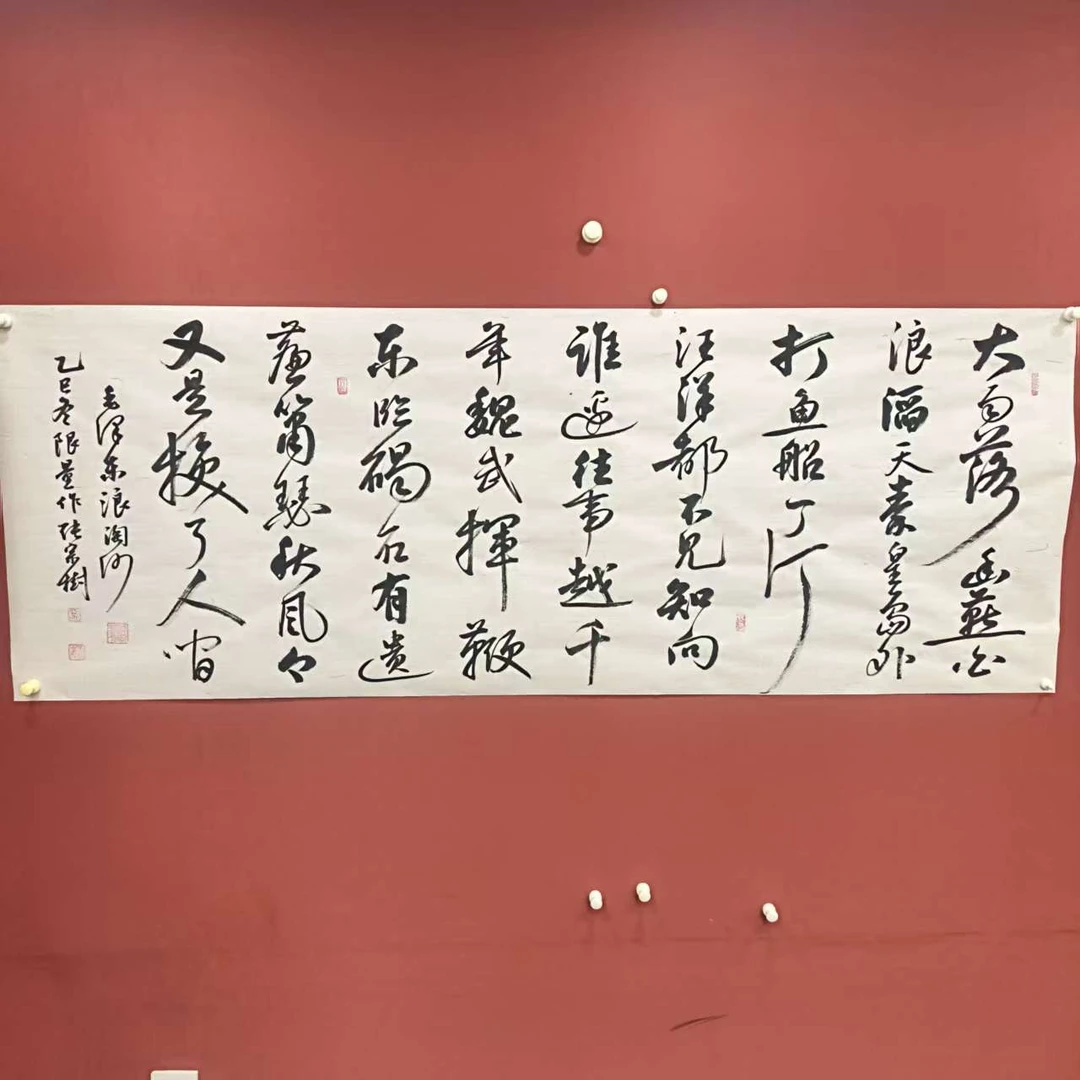 大雨落幽燕白
浪滔天秦皇岛外
打鱼船一片
汪洋都不见知向
谁边往事越千
年魏武挥鞭
东临碣石有遗
篇萧瑟秋风今
又是换了人间
毛泽东浪淘沙
乙巳冬限量作张宗樹